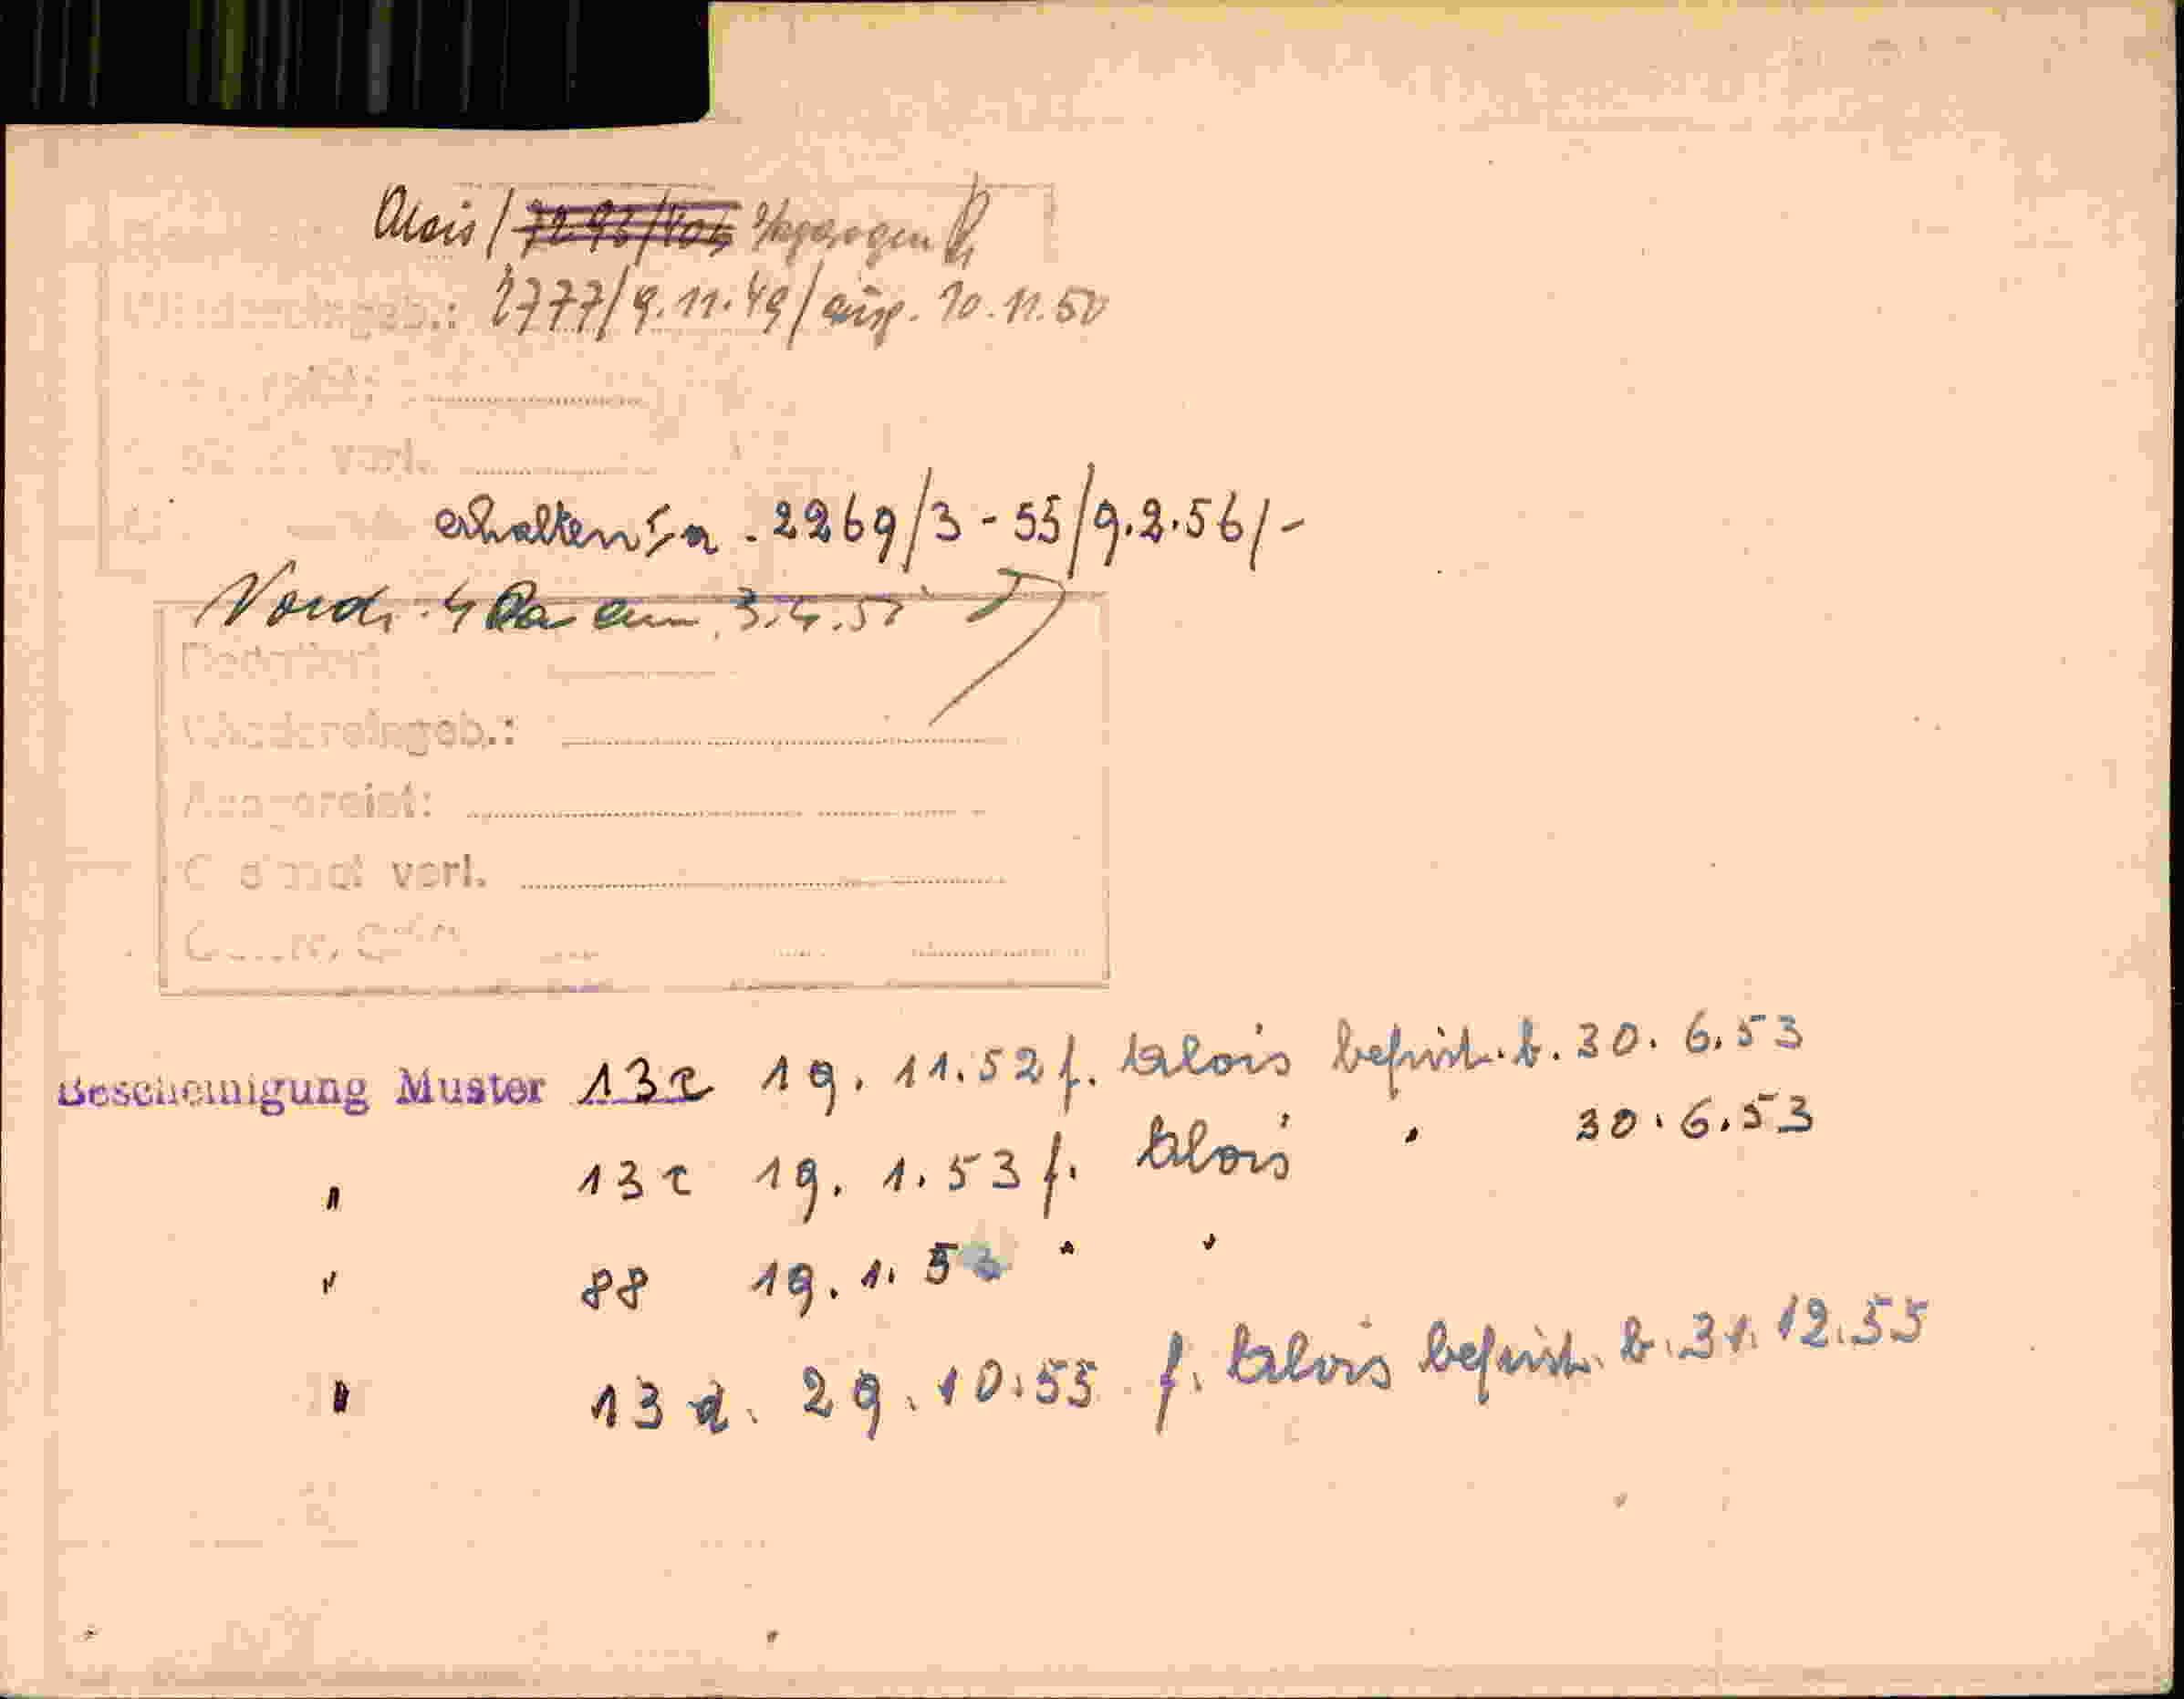 Alois / 7293/404 abgezogen
2777/9.11.49/ausg. 10.11.50
erhalten 5a. 2269/3-55/9.2.56/-
Vordr. 4 am 3.4.57
Wiedereingeb.:
Ausgereist:
verl.
Bescheinigung Muster 13c 19.11.52 f. Alois befrist. b. 30.6.53
" 13c 19.1.53 f. Alois " 30.6.53
" 88 19.1.53 " "
" 13a. 29.10.55 f. Alois befrist. b. 31.12.55